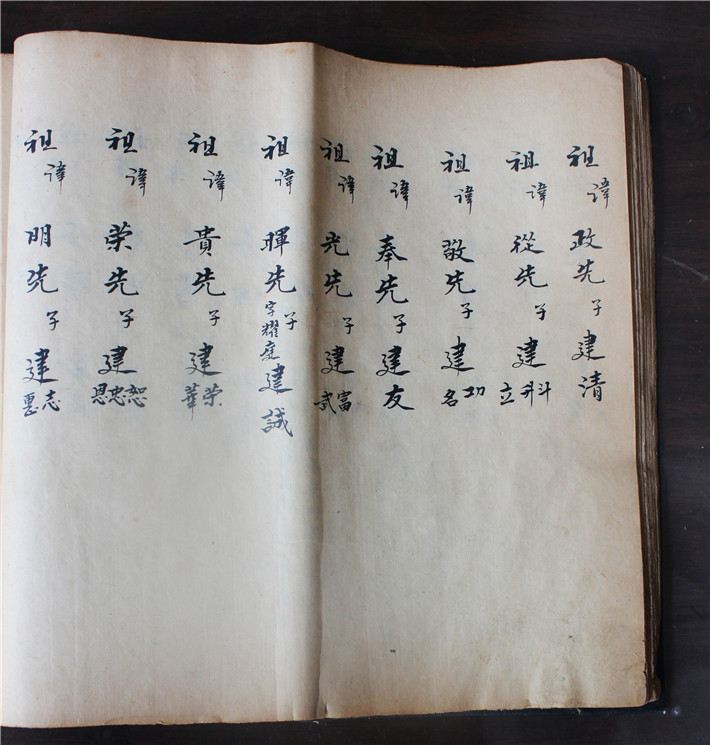 祖諱政先子建清
祖諱從先子建斗升立
祖諱敬先子建功名
祖諱奉先子建友
祖諱光先子建富武
祖諱暉先字耀庭子建誠
祖諱貴先子建榮華
祖諱荣先子建恕忠恩
祖諱明先子建志